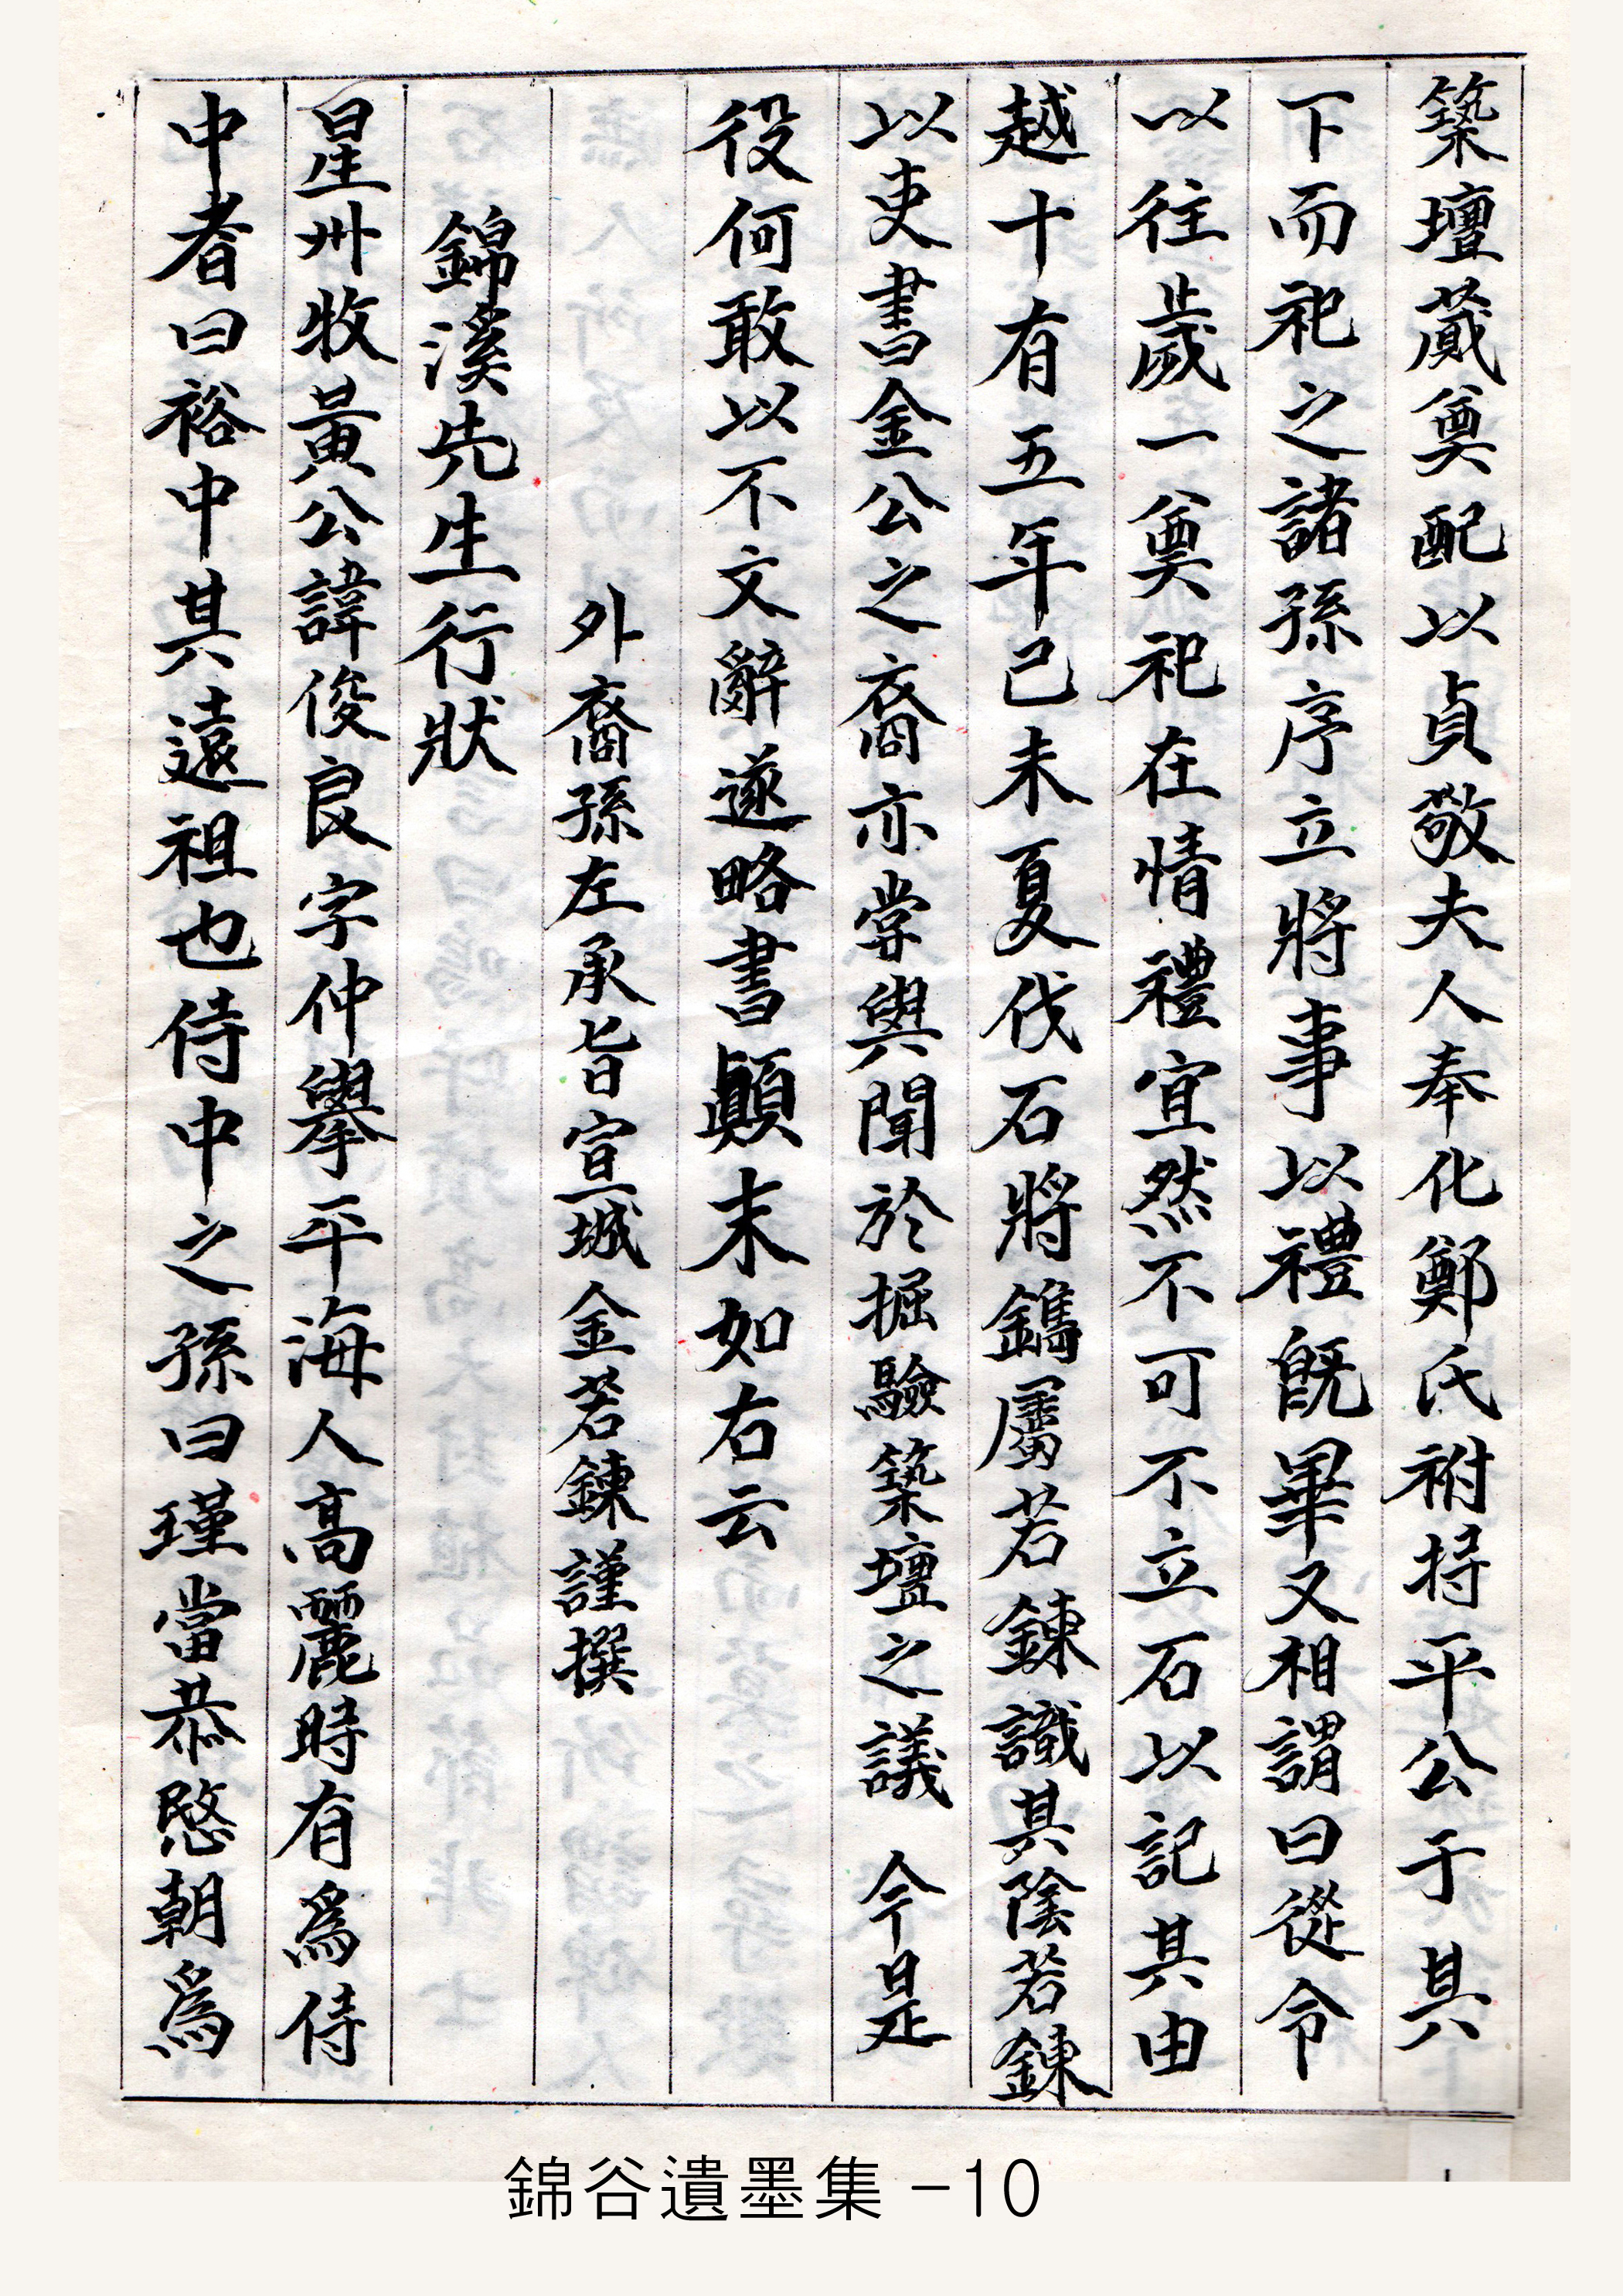 築壇蕆奠配以貞敬夫人奉化鄭氏祔持平公于其
下而祀之諸孫序立將事以禮旣畢又相謂曰從令
以往歲一奠祀在情禮宜然不可不立石以記其由
越十有五年己未夏伐石將鐫屬若鍊識其陰若鍊
以吏書金公之裔亦嘗與聞於掘驗築壇之議 今是
役何敢以不文辭遂略書顚末如右云
外裔孫左承旨宣城金若鍊謹撰
錦溪先生行狀
星州牧黃公諱俊良字仲擧平海人高麗時有爲侍
中者曰裕中其遠祖也侍中之孫曰瑾當恭愍朝爲
錦谷遺墨集 -10